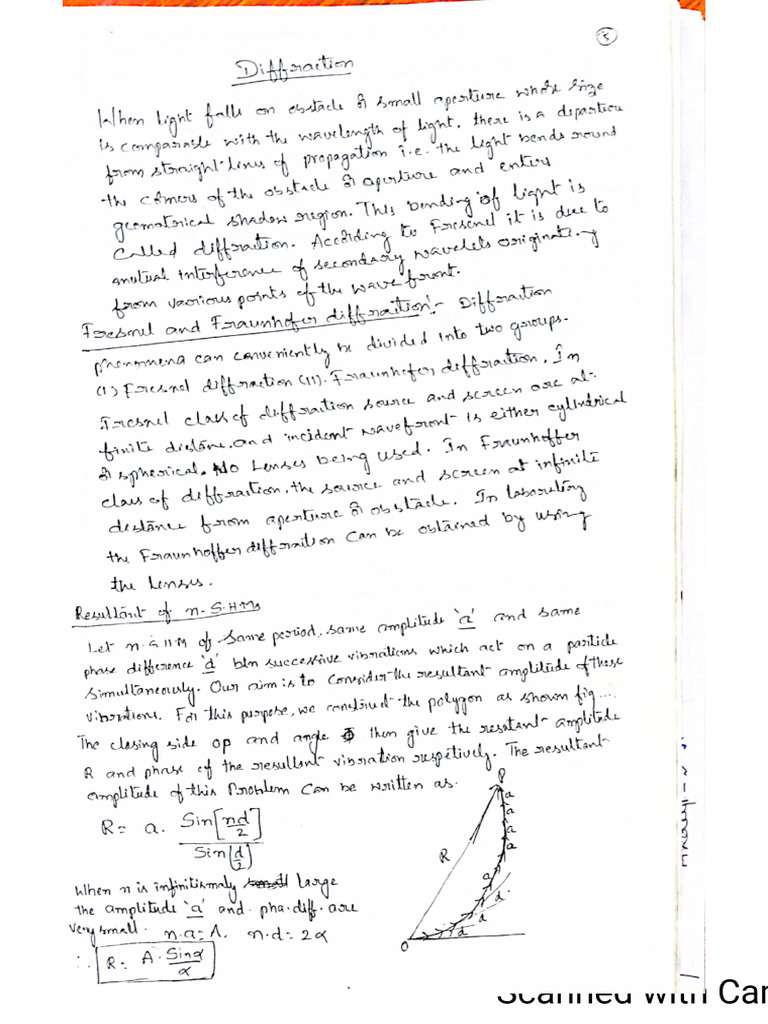 5
Diffraction
When light falls on obstacle or small aperture whose size
is comparable with the wavelength of light, there is a departure
from straight lines of propagation i.e. the light bends round
the corners of the obstacle or aperture and enters
geomatrical shadow region. This bending of light is
called diffraction. According to Fresnel it is due to
mutual interference of secondary wavelets originating
from various points of the wave front.
Fresnel and Fraunhofer diffraction:- Diffraction
phenomena can conveniently be divided into two groups.
(I) Fresnel diffraction (II). Fraunhofer, diffraction. In
Fresnel class of diffraction source and screen are at
finite distance. and incident wavefront is either cylindrical
or spherical. No Lenses being used. In Fraunhoffer
class of diffraction, the source and screen at infinite
distance from aperture or obstacle. In laboratory
the Fraunhoffer diffraction can be obtained by using
the lenses.
Resultant of n-S.H.Ms
Let n S.H.M of same period, same amplitude 'a' and same
phase difference 'd' btn successive vibrations which act on a particle
simultaneously. Our aim is to consider the resultant amplitude of these
vibrations. For this purpose, we construct the polygon as shown fig....
The closing side op and angle Φ then give the resultant amplitude
R and phase of the resultant vibration respitively. The resultant
amplitude of this Problem can be written as.
R = a. Sin[nd/2] / Sin(d/2)
When n is infinitismaly large
the amplitude 'a' and pha. diff. are
very small. n.a = A, n.d = 2α
∴ R = A. Sinα / α
P
a
a
a
a
R
a
d
a
d
d
O
Scanned with Cam